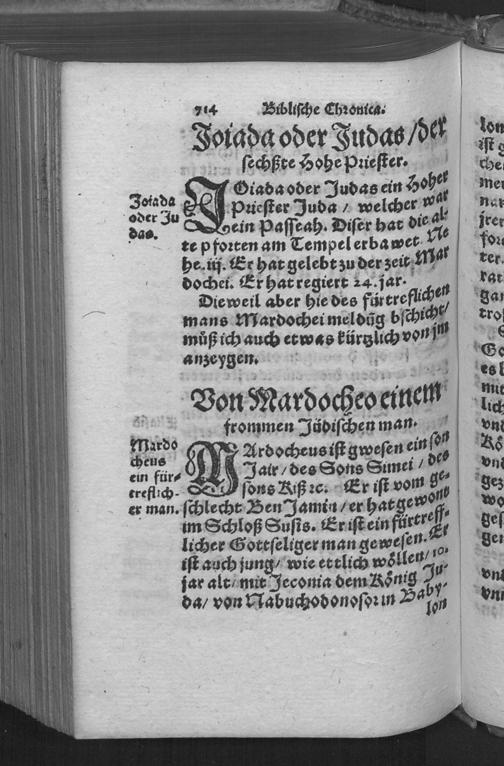 714 Biblische Chronica.
Joiada oder Judas / der
sechßte Hohe Priester.
Joiada
oder Ju
das.
JOiada oder Judas ein Hoher
Priester Juda / welcher war
ein Passeah. Diser hat die al-
te pforten am Tempel erbawet. Ne
he. iij. Er hat gelebt zu der zeit Mar
dochei. Er hat regiert 24. jar.
Dieweil aber hie des fürtreflichen
mans Mardochei meldūg bschicht /
müß ich auch etwas kürtzlich von jm
anzeygen.
Von Mardocheo einem
frommen Jüdischen man.
Mardo
cheus
ein für-
treflich-
er man.
MArdocheus ist gwesen ein son
Jair / des Sons Simei / des
sons Kiß ꝛc. Er ist vom ge-
schlecht Ben Jamin / er hat gewont
im Schloß Susis. Er ist ein fürtreff-
licher Gottseliger man gewesen. Er
ist auch jung / wie ettlich wöllen / 10.
jar alt / mit Jeconia dem König Ju-
da / von Nabuchodonosor in Baby-
lon